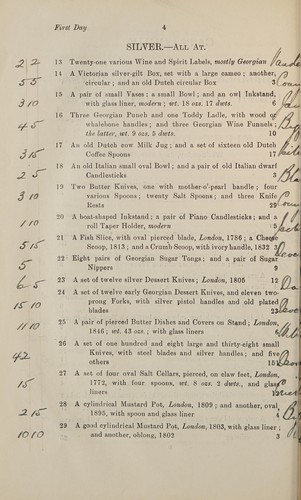 First Day 4
SILVER.—ALL AT.
2 2 13 Twenty-one various Wine and Spirit Labels, mostly Georgian
5 5 14 A Victorian silver-gilt Box, set with a large cameo; another,
circular; and an old Dutch circular Box 3
3 10 15 A pair of small Vases; a small Bowl; and an owl Inkstand,
with glass liner, modern; wt. 18 ozs. 17 dwts. 6
4 5 16 Three Georgian Punch and one Toddy Ladle, with wood or
whalebone handles; and three Georgian Wine Funnels;
the latter, wt. 9 ozs. 5 dwts. 10
3 15 17 An old Dutch cow Milk Jug; and a set of sixteen old Dutch
Coffee Spoons 17
2 5 18 An old Italian small oval Bowl; and a pair of old Italian dwarf
Candlesticks 3
3 10 19 Two Butter Knives, one with mother-o'-pearl handle; four
various Spoons; twenty Salt Spoons; and three Knife
Rests
1 10 20 A boat-shaped Inkstand; a pair of Piano Candlesticks; and a
roll Taper Holder, modern 5
5 15 21 A Fish Slice, with oval pierced blade, London, 1786; a Cheese
Scoop, 1813; and a Crumb Scoop, with ivory handle, 1832 3
5 22 Eight pairs of Georgian Sugar Tongs; and a pair of Sugar
Nippers 9
6 5 23 A set of twelve silver Dessert Knives, London, 1805 12
15 10 24 A set of twelve early Georgian Dessert Knives, and eleven two-
prong Forks, with silver pistol handles and old plated
blades 23
11 10 25 A pair of pierced Butter Dishes and Covers on Stand; London,
1846; wt. 43 ozs.; with glass liners
42 26 A set of one hundred and eight large and thirty-eight small
Knives, with steel blades and silver handles; and five
others
15 27 A set of four oval Salt Cellars, pierced, on claw feet, London,
1772, with four spoons, wt. 8 ozs. 2 dwts., and glass
liners
2 15 28 A cylindrical Mustard Pot, London, 1809; and another, oval,
1895, with spoon and glass liner 4
10 10 29 A good cylindrical Mustard Pot, London, 1803, with glass liner;
and another, oblong, 1802 3